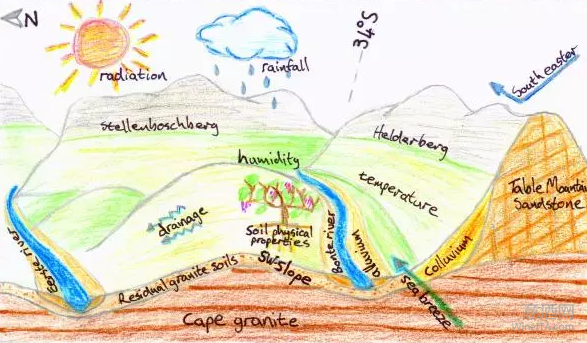 N
34°S
radiation
rainfall
South easter
Stellenboschberg
Helderberg
humidity
temperature
Table Mountain
Sandstone
drainage
Soil physical
properties
Eerste river
Bonte river
alluvium
Colluvium
Residual granite soils
SW slope
Sea breeze
Cape granite